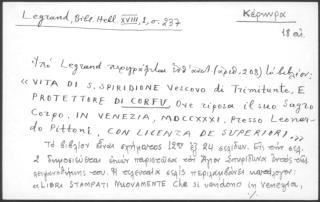 Legrand, Bibl. Hell. XVIII, 1, σ. 237
Κέρκυρα
18 αἰ.
Ὑπό Legrand περιγράφεται ὑπ' ἀριθ. (ἀριθ. 208) τό βιβλίον:
«VITA DI S. SPIRIDIONE VESCOVO DI TRIMITUNTE, E
PROTETTORE DI CORFU. Ove riposa il suo Sagro
Corpo, IN VENEZIA, MDCCXXXI. Presso Leonardo
Pittoni, CON LICENZA DE SUPERIORI.»
Τό βιβλίον εἶναι σχήματος 12ου ἐξ 24 σελίδων. Εἰς τήν σελ.
2 δημοσιεύεται εἰκών παριστῶσα τόν Ἅγιον Σπυρίδωνα ἐντός τῆς
λειψανοθήκης του. Ἡ τελευταία σελίς περιλαμβάνει κατάλογον:
«LIBRI STAMPATI NUOVAMENTE Che si vendono in Venezia,
./.